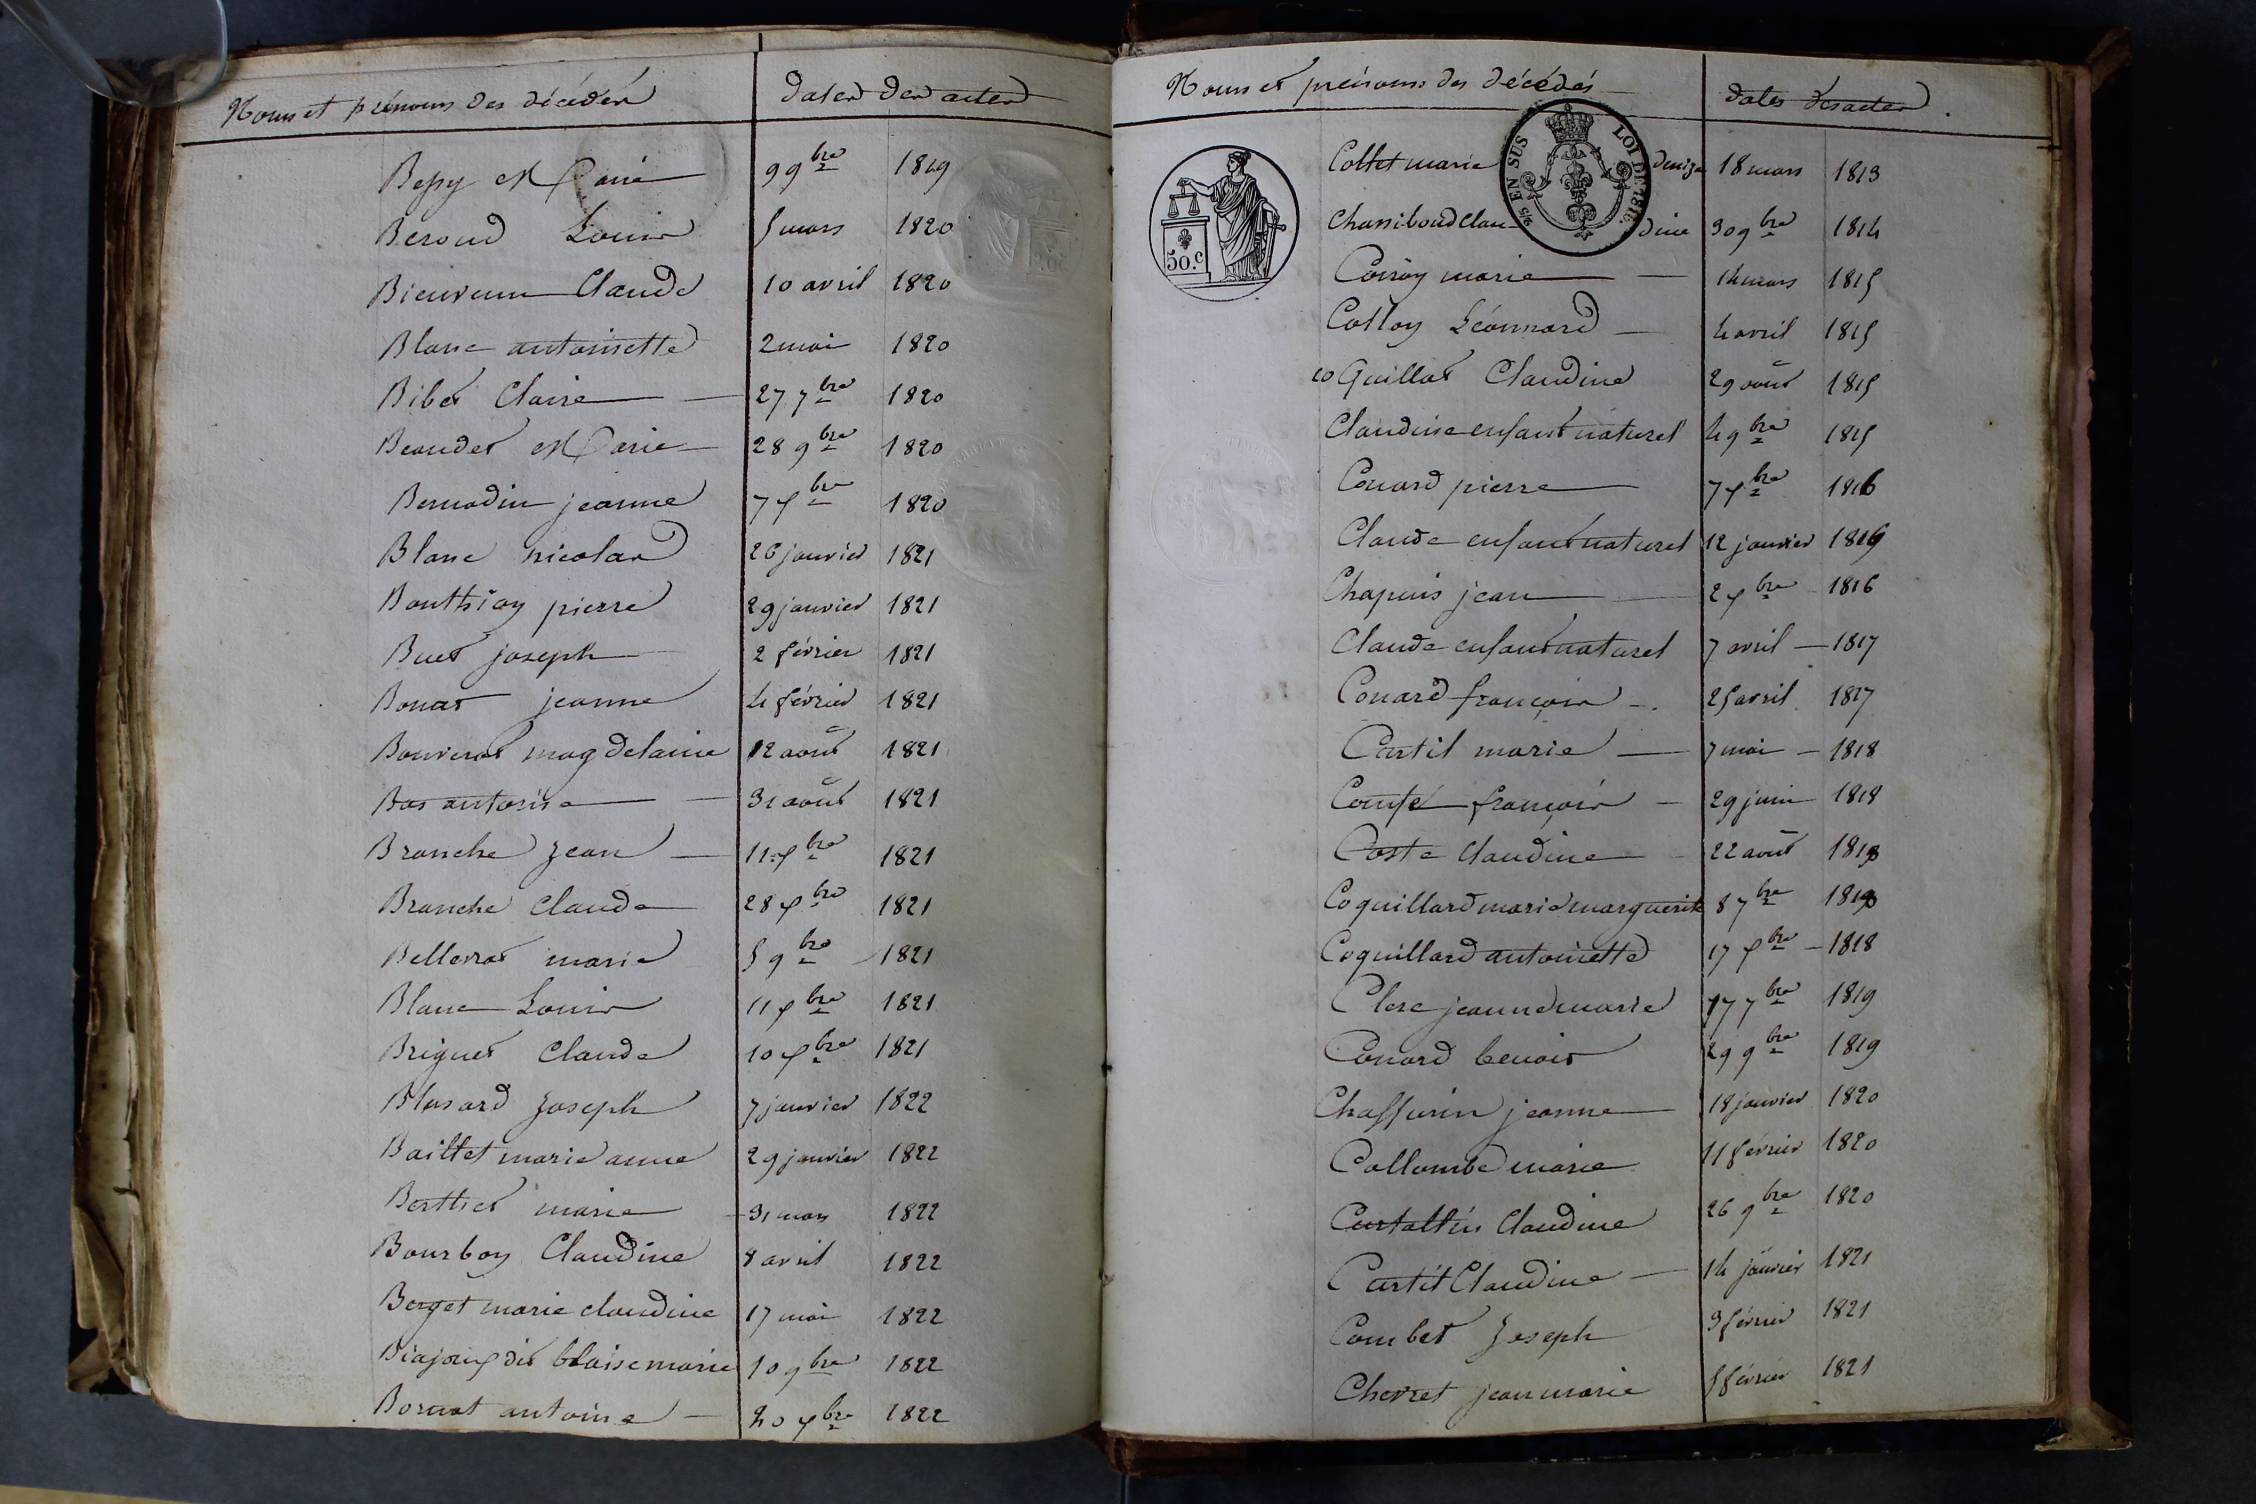 Noms et prénoms des décédés
dates des actes
Bessy Marie 9 9bre 1819
Beroud Louis 5 mars 1820
Bienvenu Claude 10 avril 1820
Blanc antoinette 2 mai 1820
Bibet Claire 27 7bre 1820
Beaudet Marie 28 9bre 1820
Bernadin jeanne 7 xbre 1820
Blanc nicolas 26 janvier 1821
Bouthioy pierre 29 janvier 1821
Buet joseph 2 février 1821
Bonat jeanne 4 février 1821
Bouverat magdelaine 12 août 1821
Bas antoine 31 août 1821
Branche Jean 11 xbre 1821
Branche Claude 28 xbre 1821
Bellerat marie 5 9bre 1821
Blanc Louis 11 xbre 1821
Briguet Claude 10 xbre 1821
Blasard Joseph 7 janvier 1822
Baillet marie anne 29 janvier 1822
Berthet marie 31 mars 1822
Bourboy Claudine 8 avril 1822
Berget marie claudine 17 mai 1822
dit blaise marie 10 9bre 1822
Bornat antoine 20 xbre 1822
Noms et prénoms des décédés
dates des actes
50.c
2/5 EN SUS
LOI DE 1816.
Collet marie denize 18 mars 1813
Chassiboud Claudine 30 9bre 1814
Coiroy marie 14 mars 1815
Colloy Léonnard 4 avril 1815
coquillat Claudine 29 août 1815
Claudine enfant naturel 4 9bre 1815
Conard pierre 7 xbre 1816
Claude enfant naturel 12 janvier 1816
Chapuis jean 2 xbre 1816
Claude enfant naturel 7 avril 1817
Conard françois 25 avril 1817
Curtil marie 7 mai 1818
Comte françois 29 juin 1818
Coste Claudine 22 août 1818
Coquillard marie marguerite 8 7bre 1818
Coquillard antoinette 17 xbre 1818
Clerc jeanne marie 17 7bre 1819
Conard benoit 29 9bre 1819
Chaffurin jeanne 18 janvier 1820
Collombe marie 11 février 1820
Curtallin Claudine 26 9bre 1820
Curtil Claudine 14 janvier 1821
Combet Joseph 3 février 1821
Chevret jean marie 5 février 1821